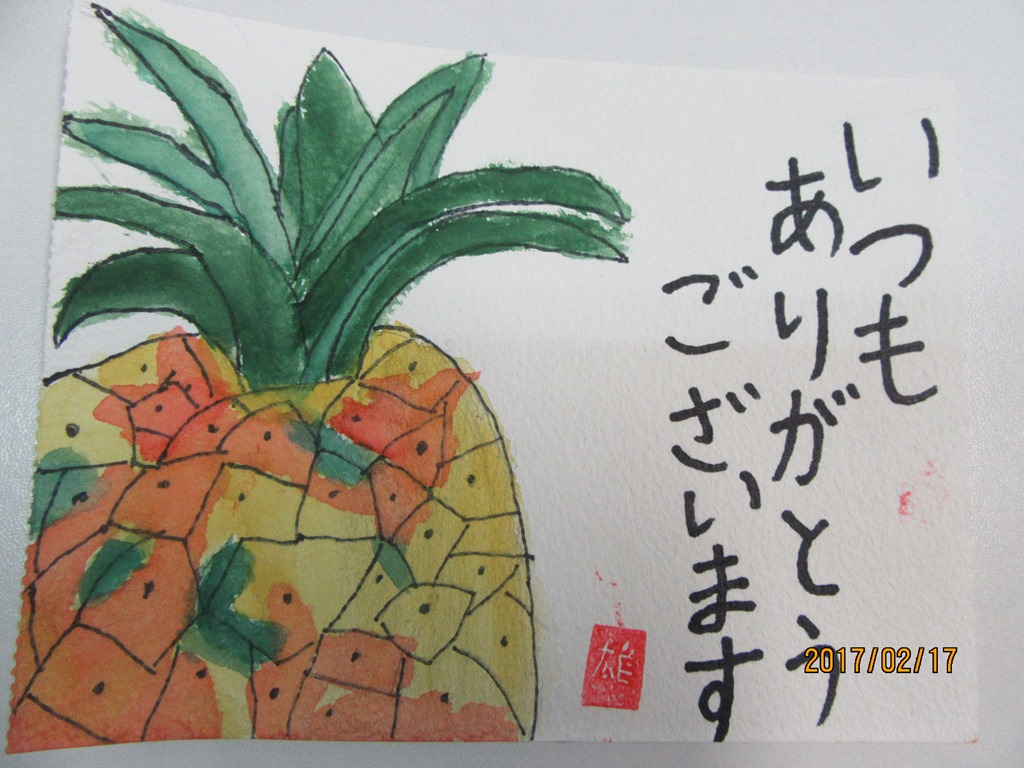 いつも
ありがとう
ございます
雄
2017/02/17